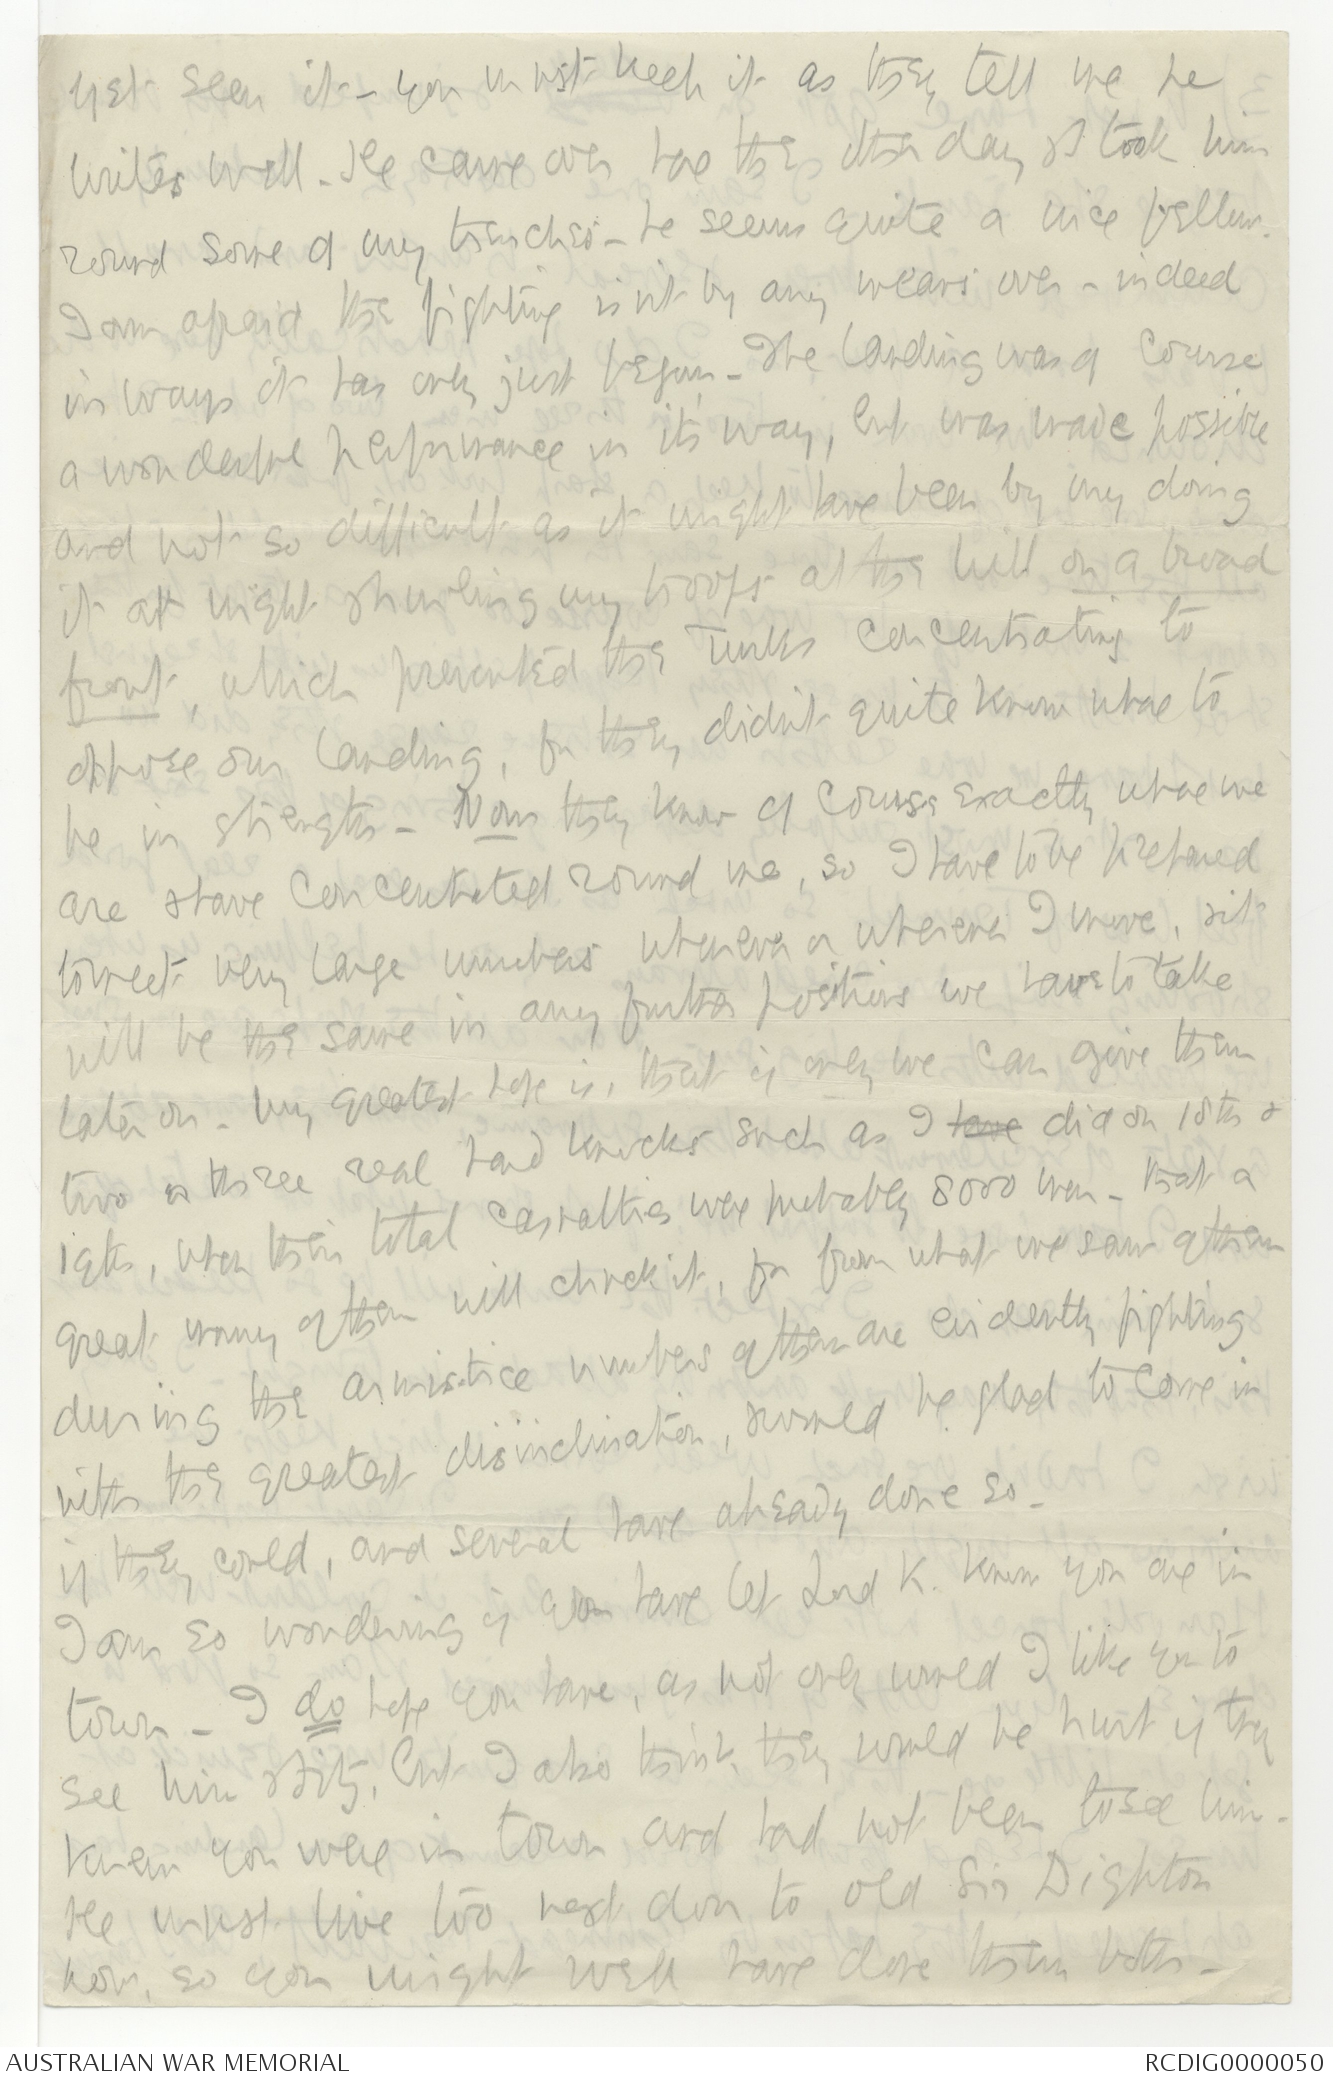 yet seen it - you must keep it as they tell me he
writes well. He came over here the other day & I took him
round some of my trenches - he seems quite a nice fellow.
I am afraid the fighting isn't by any means over - indeed
in ways it has only just began - The landing was of course
a wonderful performance in its way, but was made possible
and not so difficult as it might have been by my doing
it at night & hurling my troops at the hill on a broad
front, which prevented the Turks concentrating to
oppose our landing, for they didn't quite know where to
be in strength - Now they know of course exactly where we
are & have concentrated round me, so I have to be prepared
to meet very large numbers whenever or wherever I move, & it
will be the same in any further positions we have to take
later on - My greatest hope is, that if only we can give them
two or three real hard knocks such as I have did on 18th &
19th, when their total casualties were probably 8000 men - that a
great many of them will chuck it, for from what we saw of them
during the armistice numbers of them are evidently fighting
with the greatest disinclination, & would be glad to come in
if they could, and several have already done so -
I am so wondering if you have let Lord K. know you are in
town - I do hope you have, as not only would I like you to
see him & Fitz, but I also think they would be hurt if they
knew you were in town and had not been to see him -
He must live too next door to old Sir Dighton
now, so you might well have done them both -
AUSTRALIAN WAR MEMORIAL
RCDIG0000050